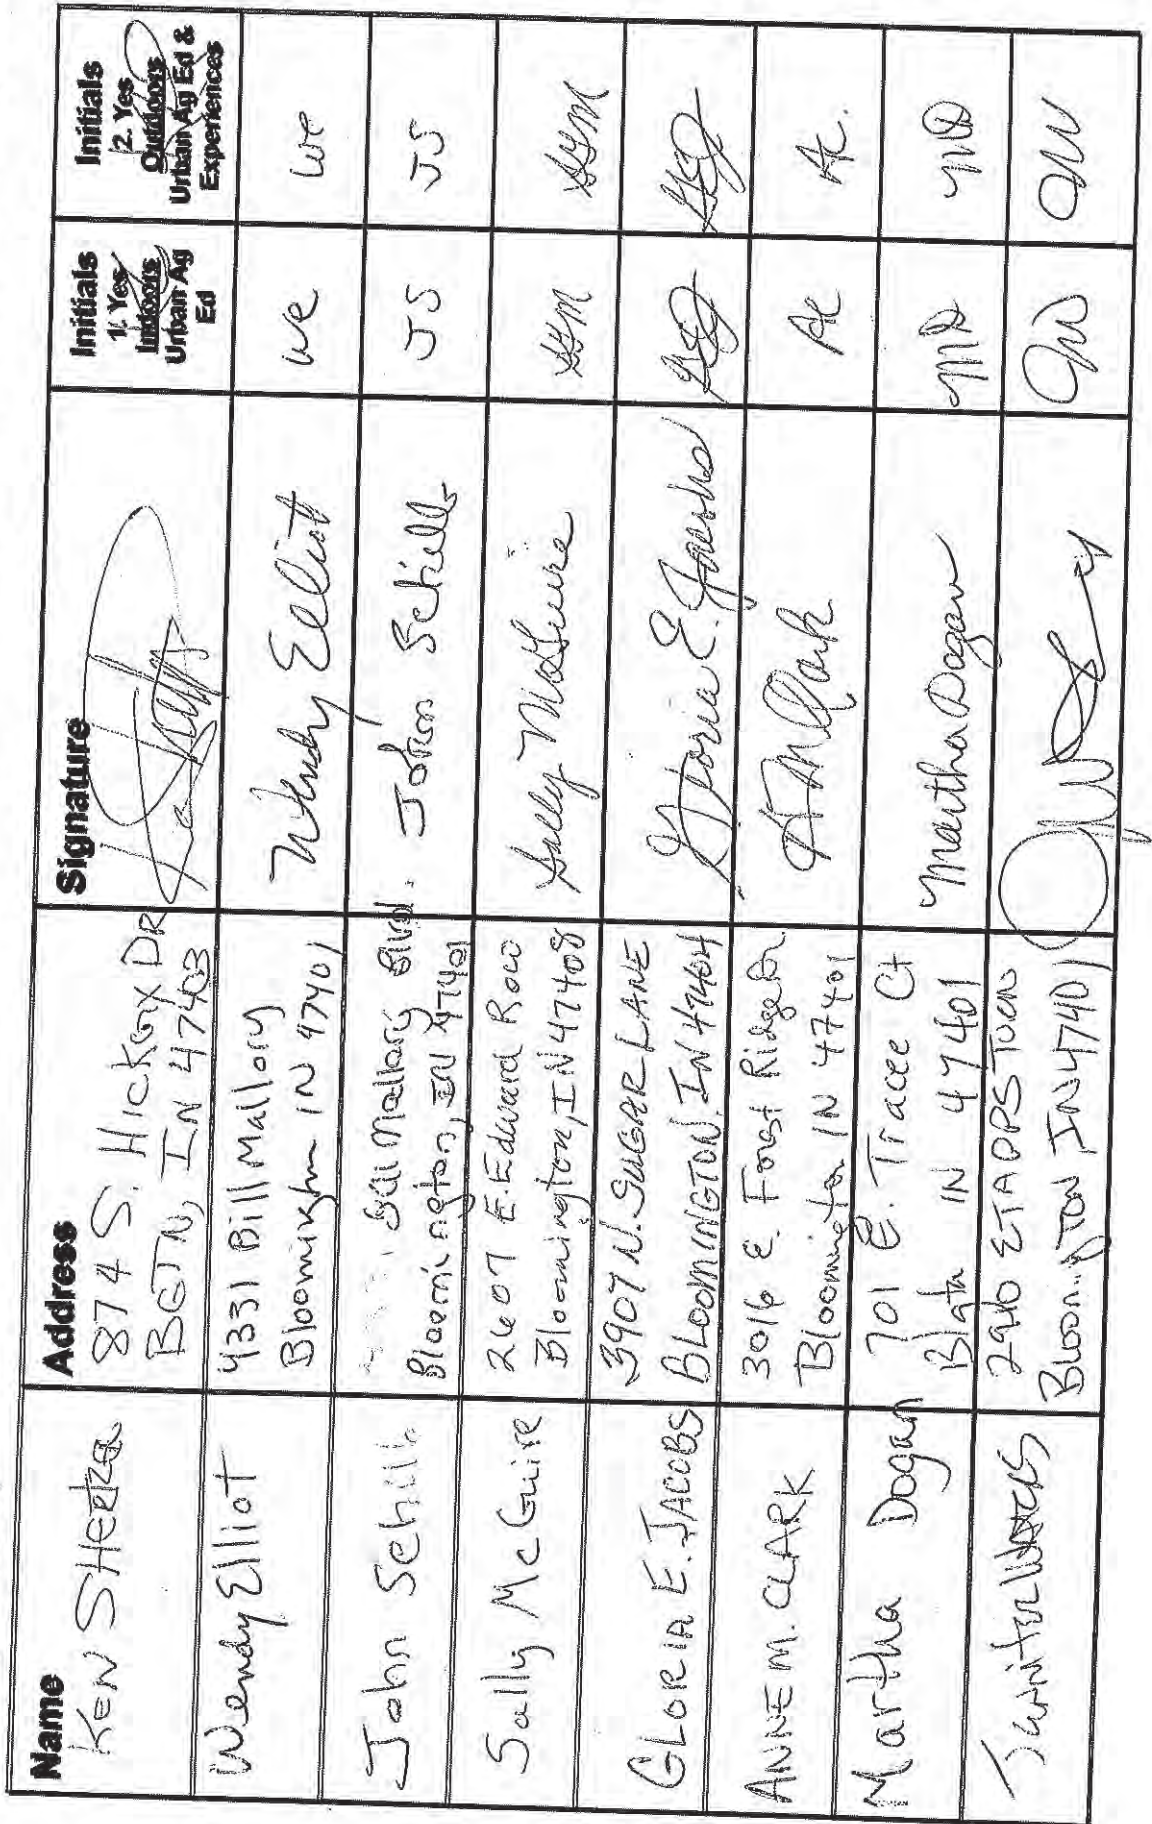 Name
Address
Signature
Initials
1. Yes
Indoors
Urban Ag
Ed
Initials
2. Yes
Outdoors
Urban Ag Ed &
Experiences
KEN
874 S. Hickory DR
BGTN, IN 47403
Wendy Elliot
4331 Bill Mallory
Bloomington IN 47401
Wendy Elliott
we
we
John
Bill Mallory Blvd.
Bloomington, IN 47401
John
JS
JS
Sally McGuire
2607 E. Edward Row
Bloomington, IN 47408
Sally McGuire
SYM
SYM
GLORIA E. JACOBS
3907 N. SUGAR LANE
BLOOMINGTON, IN 47404
Gloria E. Jacobs
GEJ
GEJ
ANNE M. CLARK
3016 E. Forest Ridge Dr.
Bloomington IN 47401
AM Clark
AC
AC.
Martha Dogan
701 E. Tracee Ct
Blgtn IN 47401
Martha Dogan
MD
MD
Bloomington IN 47401
JW
JW